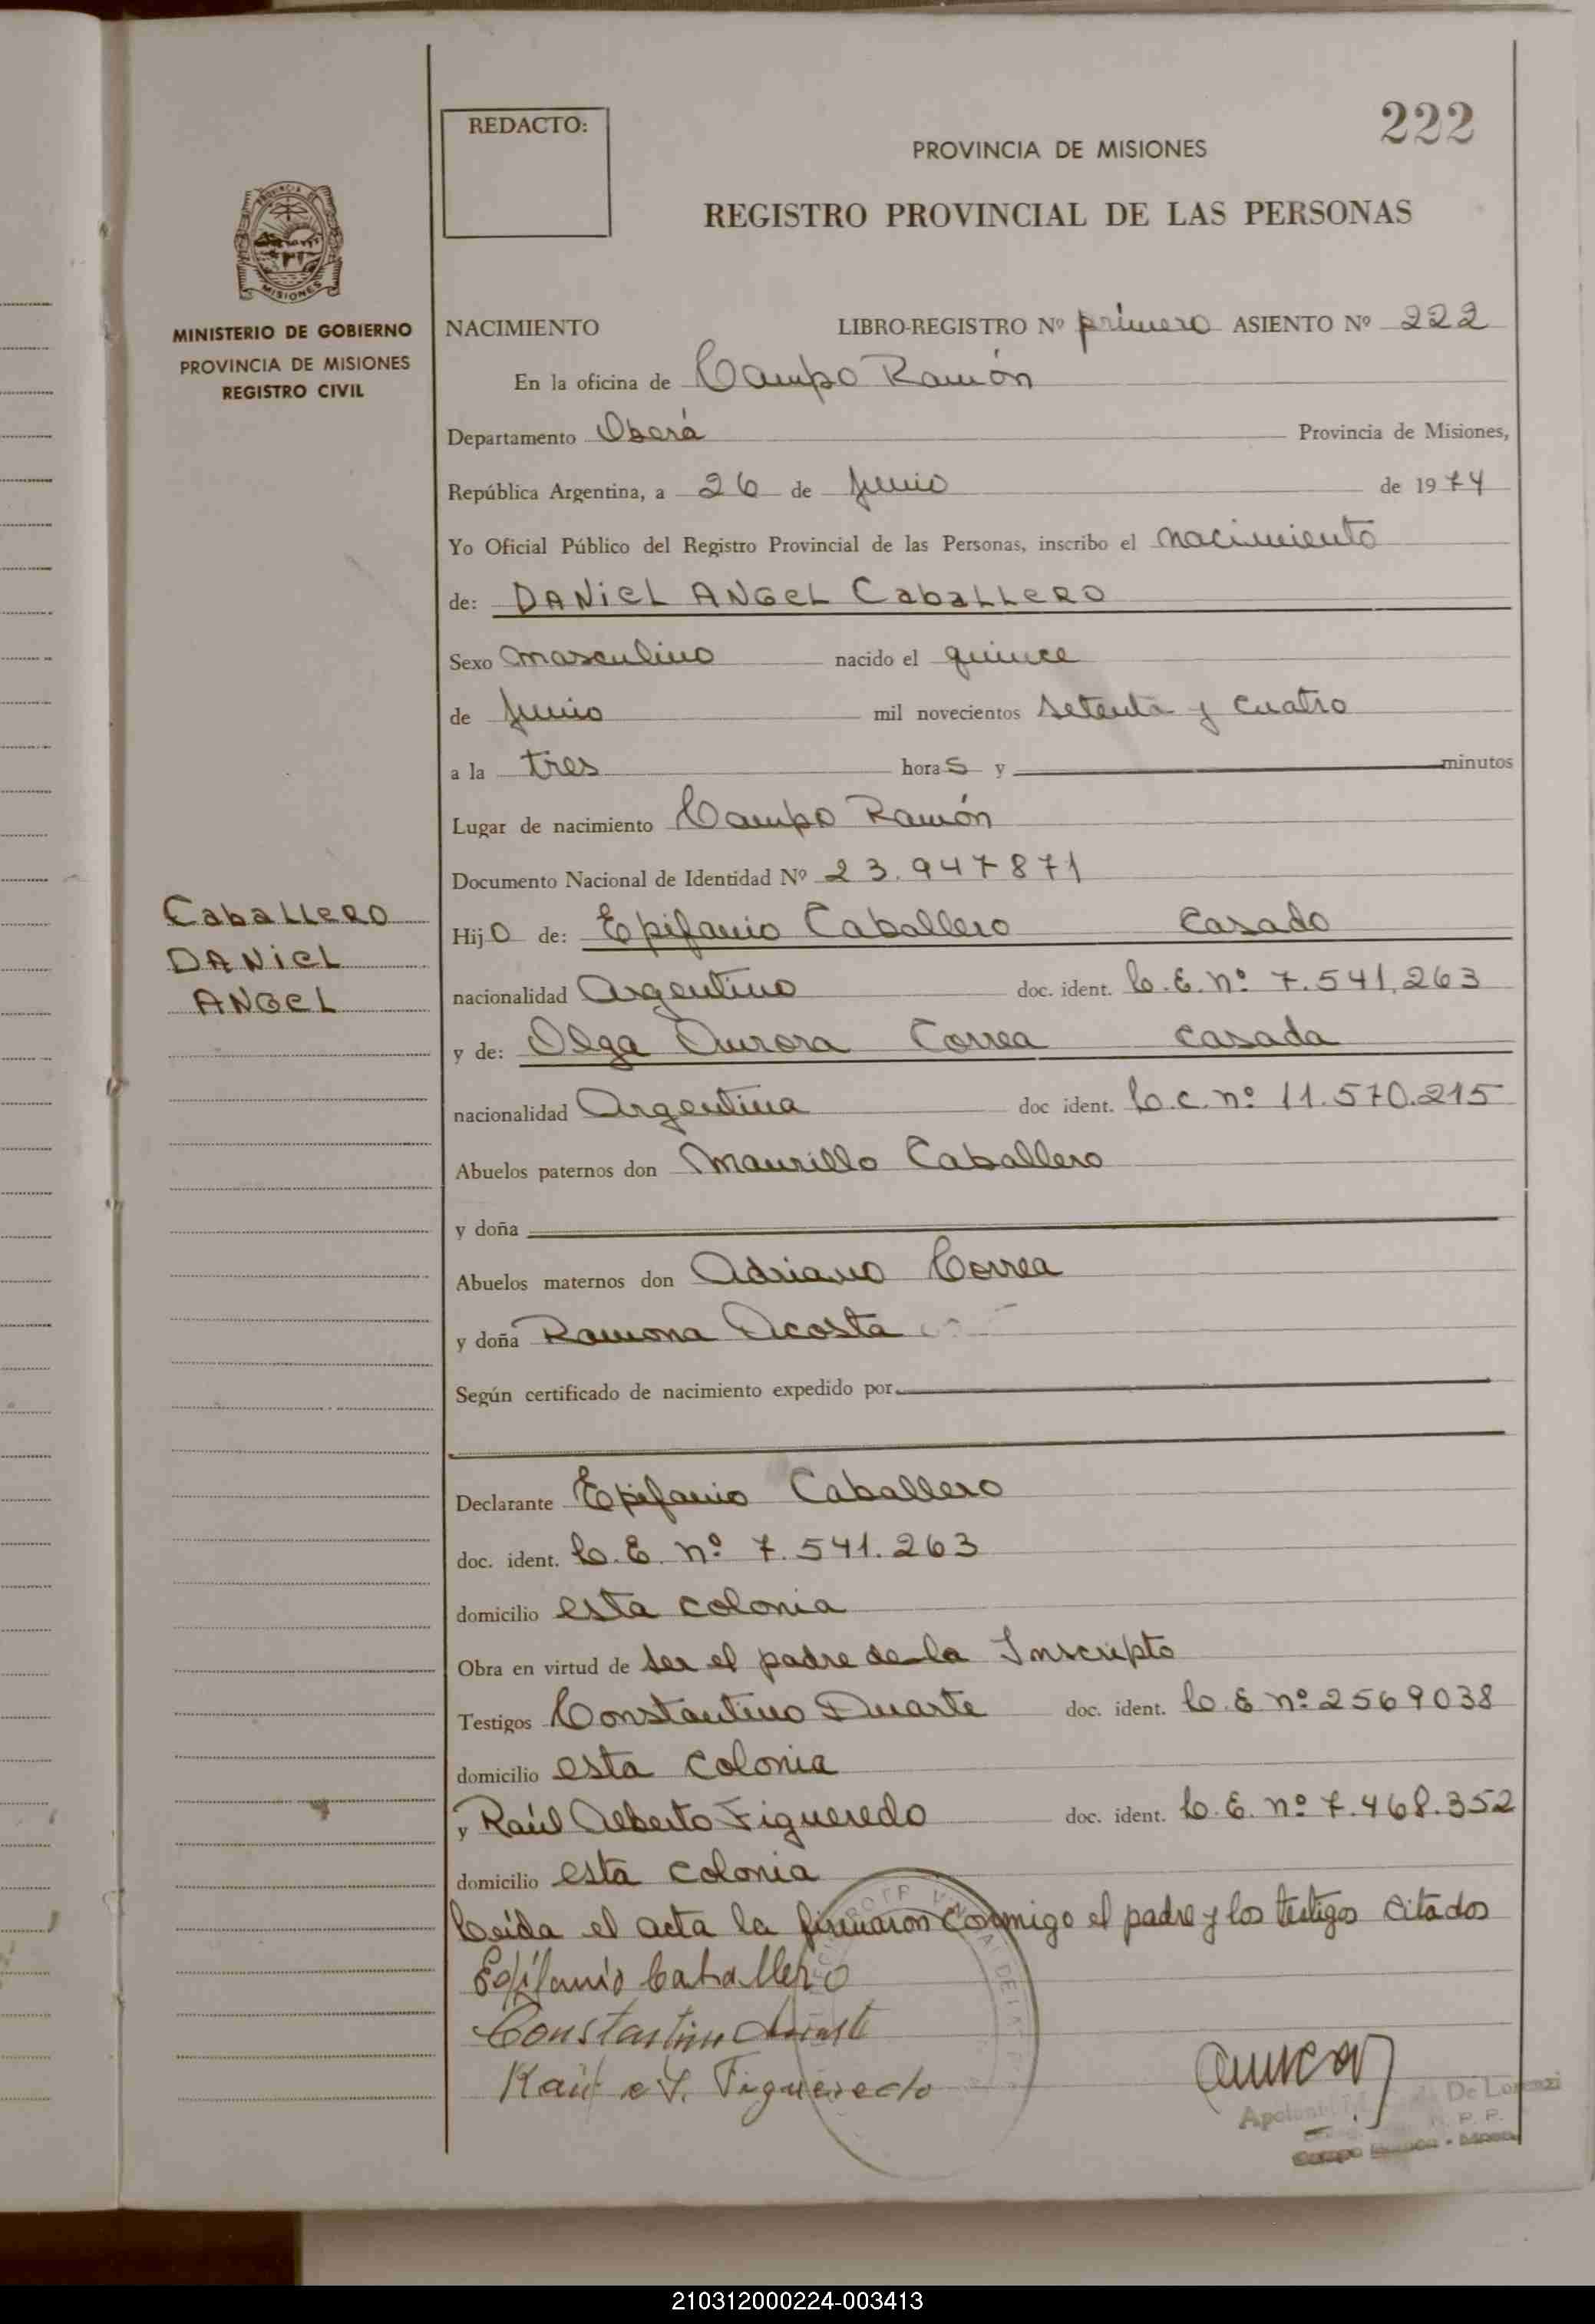 222
REDACTO:
PROVINCIA DE MISIONES
REGISTRO PROVINCIAL DE LAS PERSONAS
MISIONES
MINISTERIO DE GOBIERNO
PROVINCIA DE MISIONES
REGISTRO CIVIL
NACIMIENTO LIBRO-REGISTRO Nº primero ASIENTO Nº 222
En la oficina de Campo Ramón
Departamento Oberá Provincia de Misiones,
República Argentina, a 26 de Junio de 1974
Yo Oficial Público del Registro Provincial de las Personas, inscribo el nacimiento
de: DANIEL ANGEL CabaLLERO
Sexo masculino nacido el quince
de Junio mil novecientos setenta y cuatro
a la tres horas y minutos
Lugar de nacimiento Campo Ramón
Documento Nacional de Identidad Nº 23.947871
CabaLLERO
DANIEL
ANGEL
Hijo de: Epifanio Caballero Casado
nacionalidad Argentino doc. ident. L.E. nº 7.541.263
y de: Olga Aurora Correa casada
nacionalidad Argentina doc ident. L.C. nº 11.570.215
Abuelos paternos don Maurillo Caballero
y doña
Abuelos maternos don Adriano Correa
y doña Ramona Acosta
Según certificado de nacimiento expedido por
Declarante Epifanio Caballero
doc. ident. L.E. nº 7.541.263
domicilio esta colonia
Obra en virtud de ser el padre de la Inscripto
Testigos Constantino Duarte doc. ident. L.E nº 2569038
domicilio esta colonia
y Raúl Alberto Figueredo doc. ident. L.E. nº 7.468.352
domicilio esta colonia
Leída el acta la firmaron conmigo el padre y los testigos citados
Epifanio Caballero
Constantino Duarte
Raúl A. Figueredo
De Lorenzi
210312000224-003413